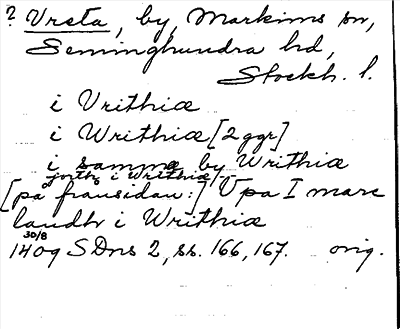 ? Vreta, by, Markims sn,
Seminghundra hd,
Stockh. l.
i Vrithiæ
i Writhiæ [2 ggr]
i samma by Writhiæ
jorth i Writhiæ
[på framsidan:] V pa I marc
landh i Writhiæ
30/8
1409 SDns 2, ss. 166, 167. orig.